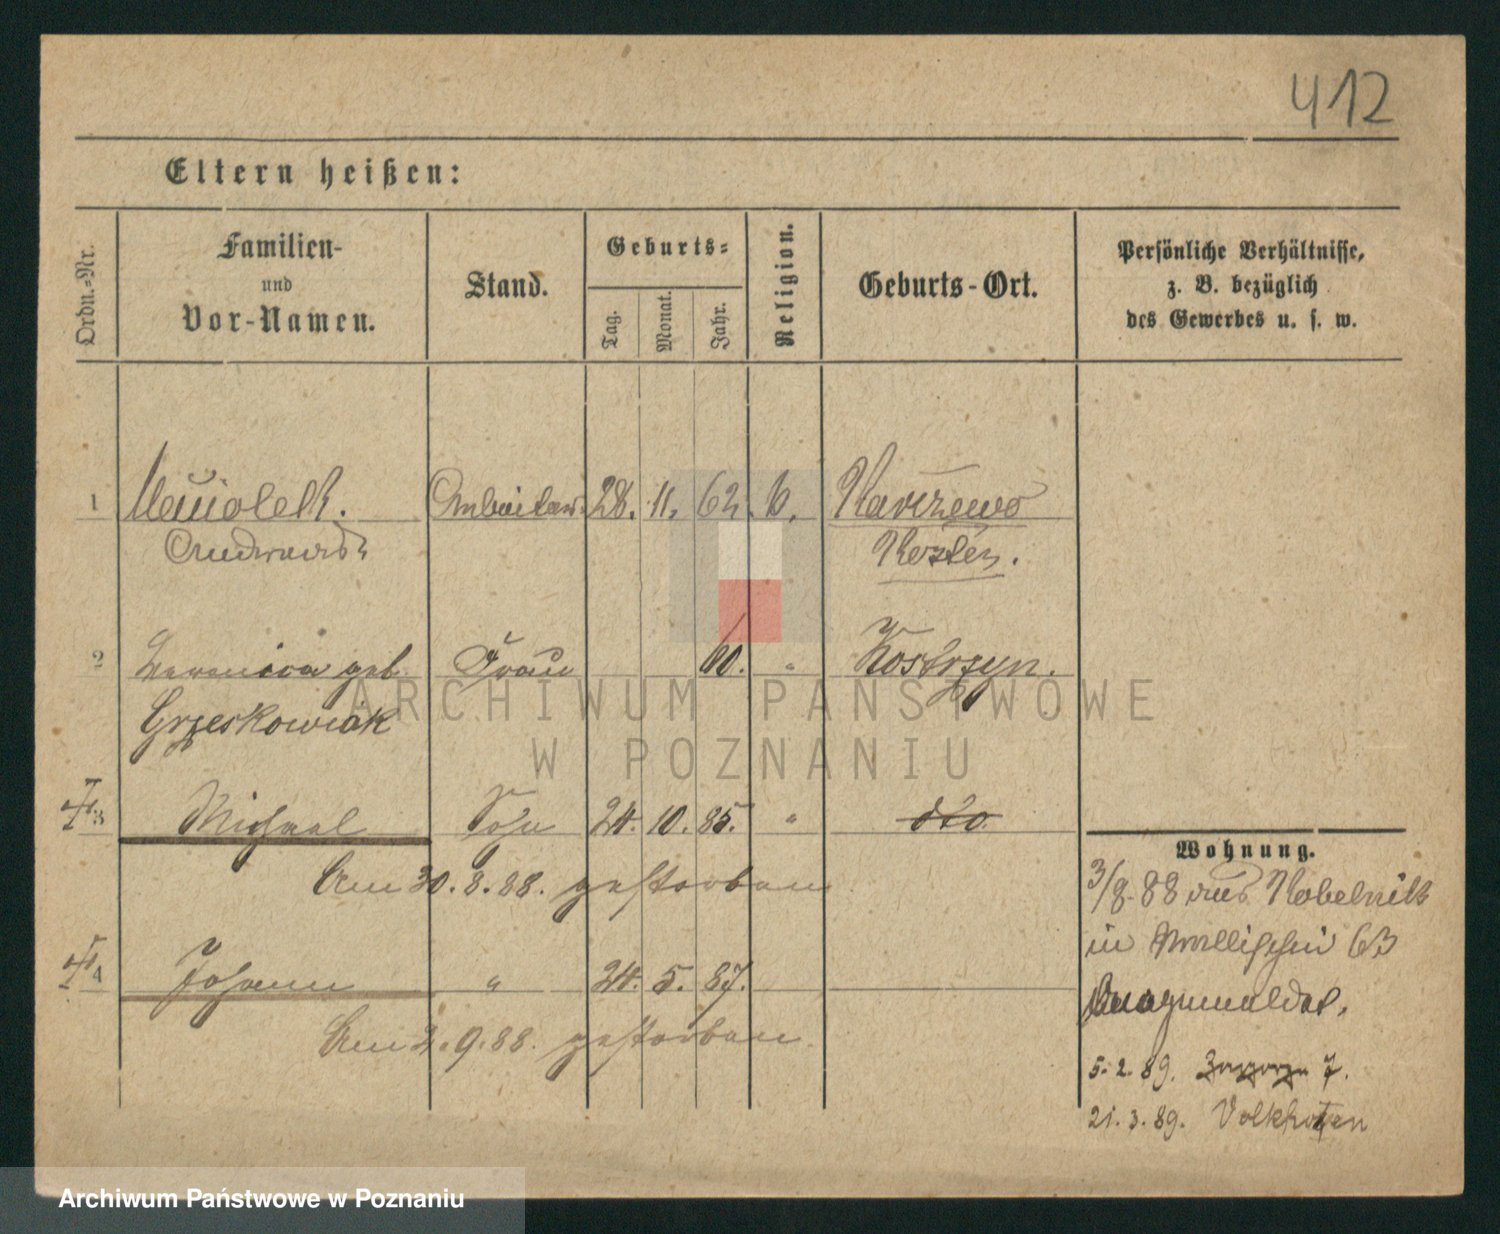 412
Eltern heißen:
Ordn.-Nr.
Familien-
und
Vor-Namen.
Stand.
Geburts-
Tag.
Monat.
Jahr.
Religion.
Geburts-Ort.
Persönliche Verhältnisse,
z. B. bezüglich
des Gewerbes u. s. w.
1 28. 11. 62.
Kosten.
2 geb Frau 60. " Kostrzyn.
Grzeskowiak
† 3 Michael Sohn 24. 10. 85. " dto.
Am 30. 8. 88. gestorben
† 4 Johann " 24. 5. 87.
Am 2. 9. 88. gestorben.
Wohnung.
3/8. 88 aus Kobelnik
in Wallischei 63
angemeldet.
5. 2. 89. Zagorze 7.
21. 3. 89. Volkhoven
ARCHIWUM PAŃSTWOWE
W POZNANIU
Archiwum Państwowe w Poznaniu